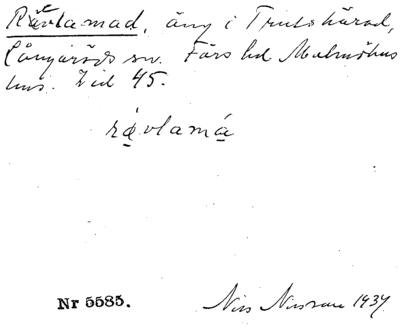 Rävlamad, äng i Trulshärad,
Långaröds sn. Färs hd Malmöhus
län. Lid 45.
rävlamá
Nr 5585.
Nils 1934